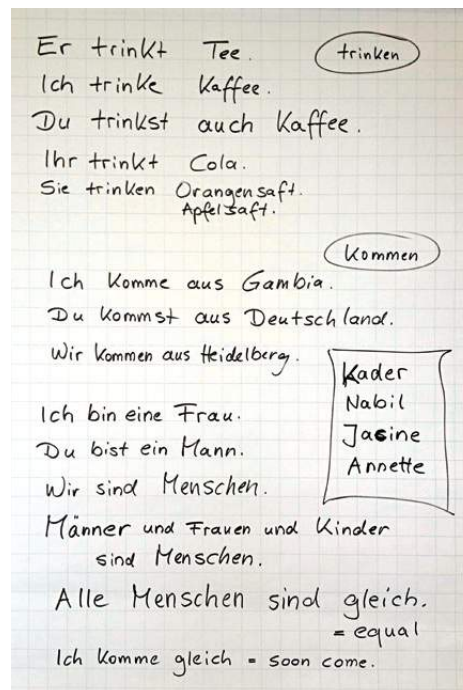 Er trinkt Tee.
trinken
Ich trinke Kaffee.
Du trinkst auch Kaffee.
Ihr trinkt Cola.
Sie trinken Orangensaft.
Apfelsaft.
kommen
Ich komme aus Gambia.
Du kommst aus Deutschland.
Wir kommen aus Heidelberg.
Kader
Nabil
Jacine
Annette
Ich bin eine Frau.
Du bist ein Mann.
Wir sind Menschen.
Männer und Frauen und Kinder
sind Menschen.
Alle Menschen sind gleich.
= equal
Ich komme gleich = soon come.